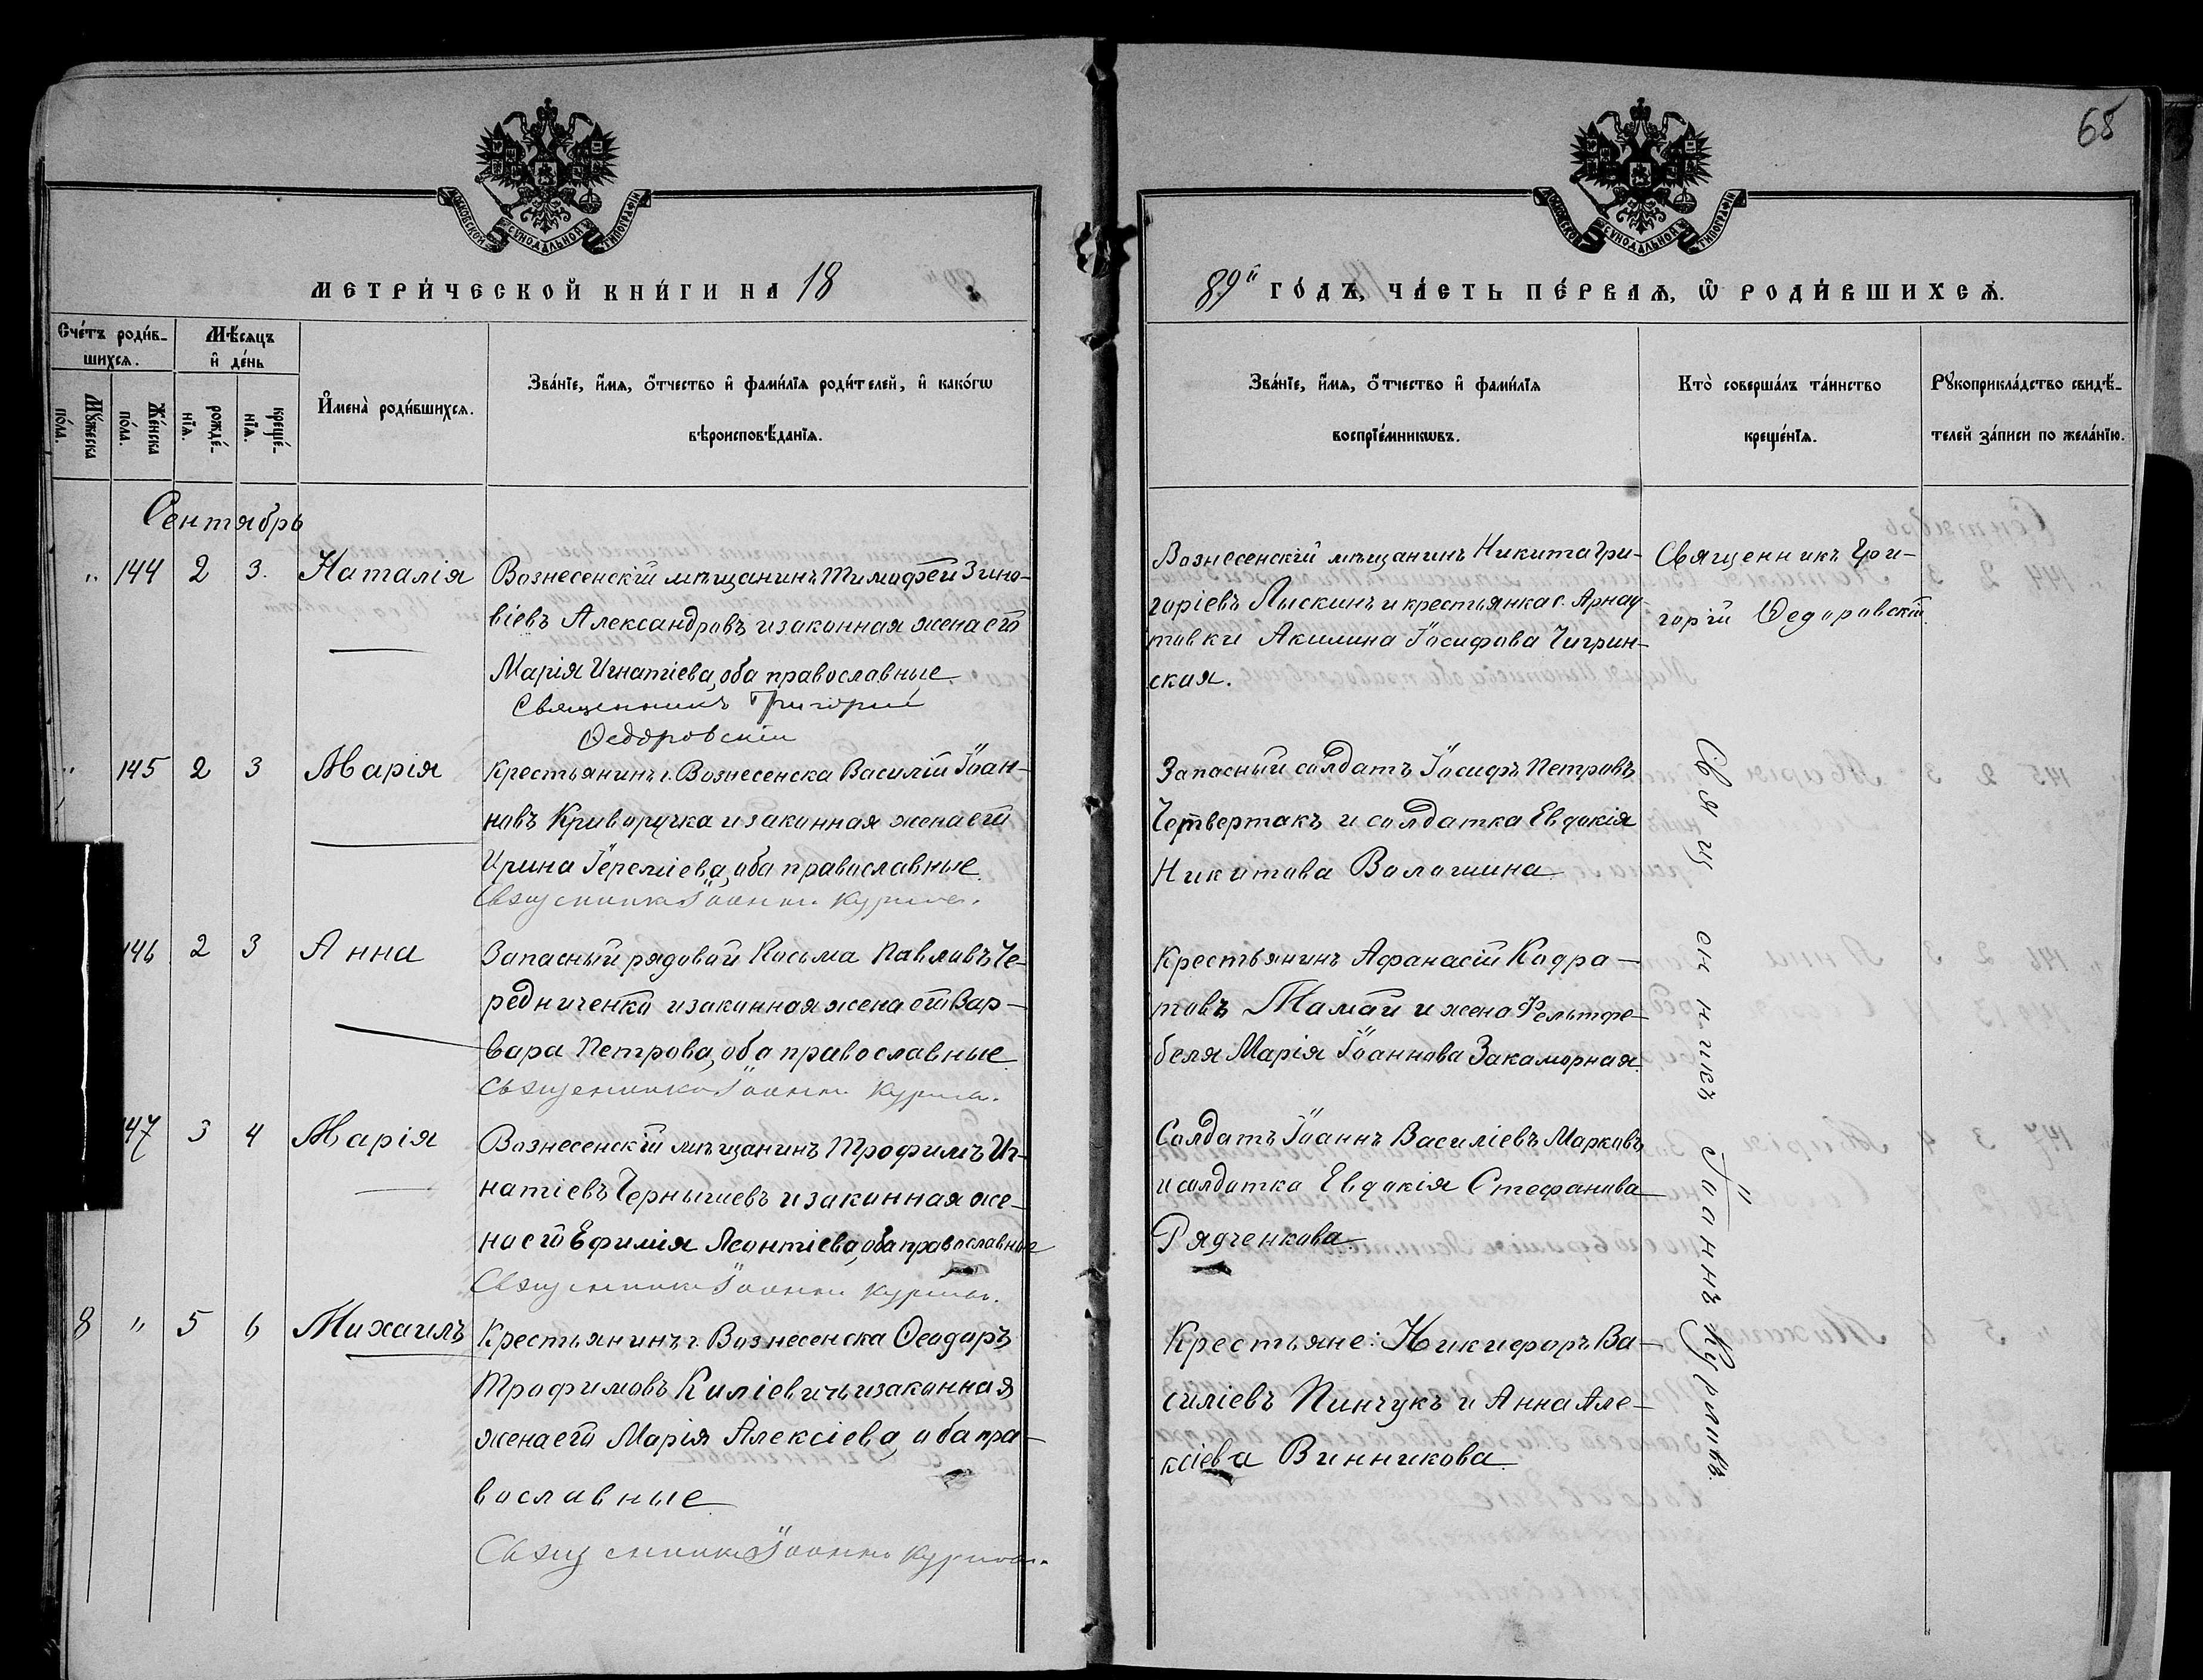 65
МОСКОВСКОЙ СѴНОДАЛЬНОЙ ТИПОГРАФІИ
МОСКОВСКОЙ СѴНОДАЛЬНОЙ ТИПОГРАФІИ
МЕТРИ́ЧЕСКОЙ КНИ́ГИ НА 18
89й ГО́ДЪ, ЧА́СТЬ ПЕ́РВАѦ, Ѡ҆ РОДИ́ВШИХСѦ.
Сче́тъ роди́в-
шихсѧ.
Мꙋ́жеска
по́ла.
Же́нска
по́ла.
Мѣ́сѧцъ
и҆ де́нь
рожде́-
нїѧ.
креще́-
нїѧ.
И҆мена̀ роди́вшихсѧ.
Зва́нїе, и҆́мѧ, ѻ҆́тчество и҆ фами́лїѧ роди́телей, и҆ како́гѡ
вѣроисповѣ́данїѧ.
Зва́нїе, и҆́мѧ, ѻ҆́тчество и҆ фами́лїѧ
воспрїе́мникѡвъ.
Кто̀ соверша́лъ та́инство
креще́нїѧ.
Рꙋкоприкла́дство свидѣ́-
телей за́писи по жела́нїю.
Сентябрь
" 144 2 3. Наталія
Вознесенскій мѣщанинъ Тимофей Зино-
віевъ Александровъ и законная жена его
Марія Игнатіева, оба православные
Священникъ Григорій
Ѳедоровскій
Вознесенскій мѣщанинъ Никита Гри-
горіевъ Лыскинъ и крестьянка с. Арнау-
товки Акилина Іосифова Чигрин-
ская.
Священникъ Гри-
горій Ѳедоровскій.
" 145 2 3 Марія
Крестьянинъ г. Вознесенска Василій Іоан-
новъ Криворучка и законная жена его
Ирина Іереміева, оба православные.
Священникъ Іоаннъ
Запасный солдатъ Іосифъ Петровъ
Четвертакъ и солдатка Евдокія
Никитова Волошина.
Священникъ Іоаннъ
146 2 3 Анна
Запасный рядовой Косьма Павловъ Че-
редниченко и законная жена его Вар-
вара Петрова, оба православные.
Священникъ Іоаннъ
Крестьянинъ Афанасій Кодра-
товъ Мамай и жена Фельтфе-
беля Марія Іоаннова Закаморная.
147 3 4 Марія
Вознесенскій мѣщанинъ Трофимъ Иг-
натіевъ Чернышевъ и законная же-
на его Ефимія Леонтіева, оба православные
Священникъ Іоаннъ
Солдатъ Іоаннъ Василіевъ Марковъ
и солдатка Евдокія Стефанова
Рядченкова
8 " 5 6 Михаилъ
Крестьянинъ г. Вознесенска Ѳеодоръ
Трофимовъ Киліевичъ и законная
жена его Марія Алексіева, оба пра-
вославные
Священникъ Іоаннъ
Крестьяне: Никифоръ Ва-
силіевъ Пинчукъ и Анна Але-
ксіева Винникова.